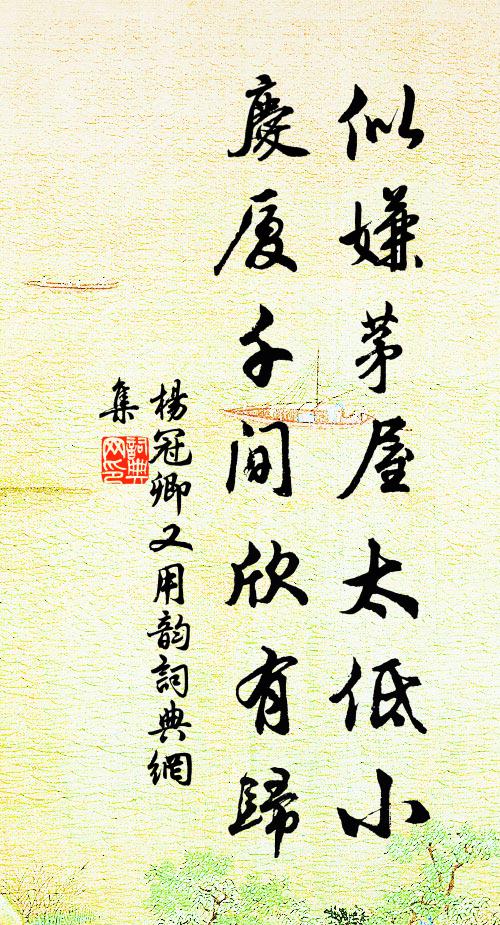 似嫌茅屋太低小
慶厦千间欣有歸
楊冠卿又用韵詞典網
集
詞典网印